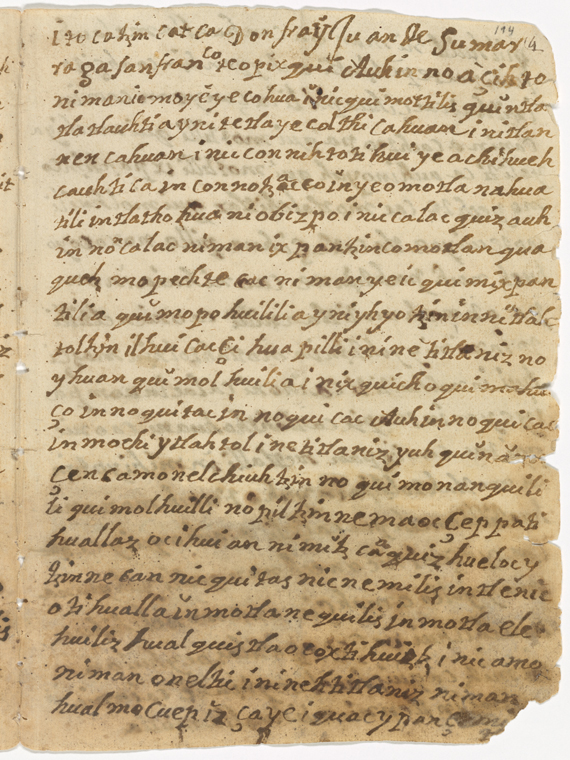 itocatzin catca Don fray Juan de Sumar
raga san franco teopixqui Auh in no àçihto
niman ic moyeyecohua inic quimottiliz quintla
tlatlauhtia yn itetlayecolticahuan initlan
nencahuan inic connihtotihui ye achi hueh
cauhtica in connotzaco in yeomotlanahua
tili in tlatohuani obizpo inic calaquiz auh
in nocalac niman ixpantzinco motlanqua
quetz mopechtecac niman ye ic quimixpan
tilia quimopohuililia yn iyhyotzin in itlah
toltzin ilhuicac Cihuapilli in inetitlaniz no
yhuan quimolhuilia in ixquich oquimahui
ço in oquittac in oquicac Auh in oquicac
in mochi ytlahtol inetitlaniz yuh quin
cencamo nelchiuhtzino quimonanquili
li quimolhuilli nopiltzin ne ma oc ceppa ti
huallaz oc ihuian nimitzcaquiz huel oc y
tzinnecan niquittaz nicnemiliz in tlein ic
otihualla in motlanequiliz in motlaele
huiliz hualquiz tlaocoxtihuitz inic amo
niman onelti in inetitlaniz niman
hualmocuep iz ça ye iquac ypan